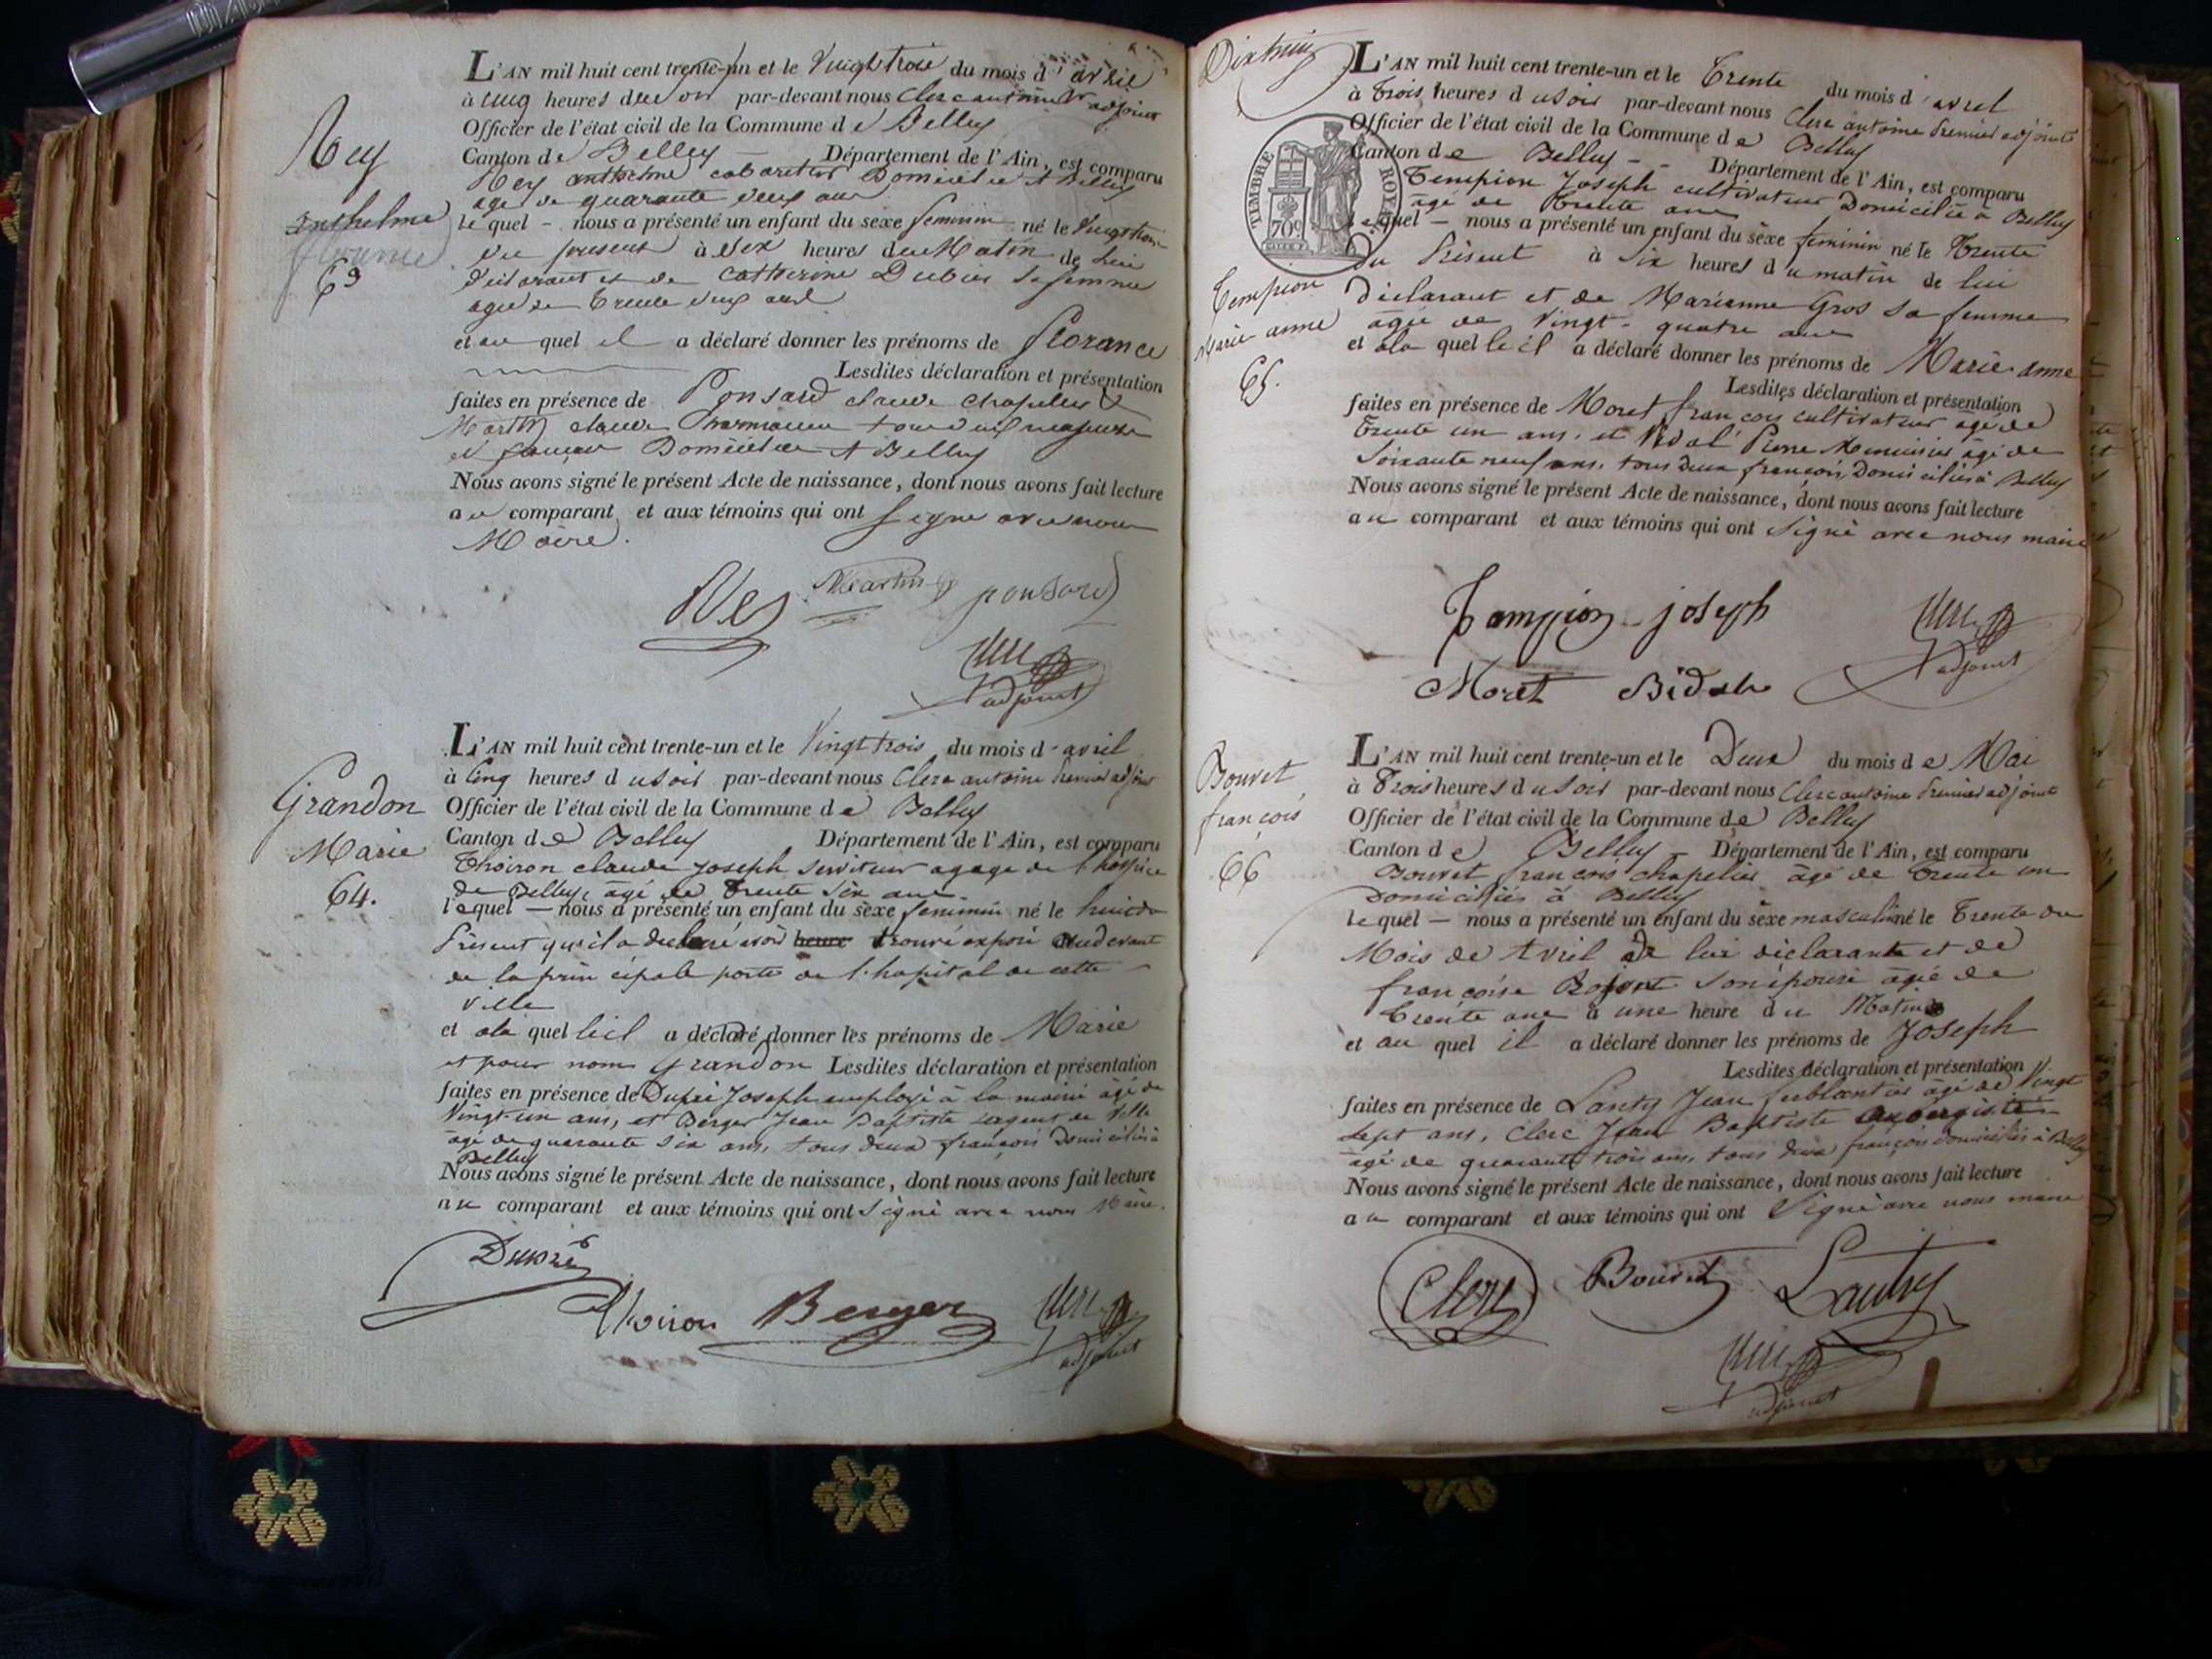 Rey
anthelme
florance
63
L'AN mil huit cent trente-un et le Vingt trois du mois d'avril
à cinq heures du soir par-devant nous Clerc antoine 1er adjoint
Officier de l'état civil de la Commune de Belley
Canton de Belley Département de l'Ain, est comparu
Rey anthelme cabaretier Domicilié à Belley
agé de quarante deux ans
lequel nous a présenté un enfant du sexe feminin né le Vingt trois
du present à Six heures du Matin de Lui
déclarant et de Catherine Dubois Sa femme
agée de trente deux ans
et au quel il a déclaré donner les prénoms de florance
Lesdites déclaration et présentation
faites en présence de Ponsard claude chapelier &
Martin claude Pharmacien tous deux majeurs
et français Domiciliés à Belley
Nous avons signé le présent Acte de naissance, dont nous avons fait lecture
au comparant et aux témoins qui ont signé avec nous
Maire.
Rey Martin ponsard
Clerc
adjoint
Grandon
Marie
64.
L'AN mil huit cent trente-un et le Vingt trois du mois d'avril
à Cinq heures du soir par-devant nous Clerc antoine Premier adjoint
Officier de l'état civil de la Commune de Belley
Canton de Belley Département de l'Ain, est comparu
Thoiron claude joseph serviteur agage de l'hospice
de Belley, âgé de trente six ans
lequel nous a présenté un enfant du sexe feminin né le huit du
Présent qu'il a declaré avoir trouvé exposé au devant
de la principale porte de l'hopital de cette
Ville
et ala quelle il a déclaré donner les prénoms de Marie
et pour nom Grandon Lesdites déclaration et présentation
faites en présence de Dupré Joseph employé à la mairie âgé de
Vingt-un ans, et Berger Jean Baptiste sergent de Ville
âgé de quarante six ans, tous deux françois Domiciliés à
Belley
Nous avons signé le présent Acte de naissance, dont nous avons fait lecture
au comparant et aux témoins qui ont Signé avec nous Maire.
Dupré
Thoiron Berger Clerc
adjoint
Dixhuit
TIMBRE ROYAL
70c
Tempion
Marie anne
65.
L'AN mil huit cent trente-un et le Trente du mois d'avril
à Trois heures du soir par-devant nous Clerc antoine Premier adjoint
Officier de l'état civil de la Commune de Belley
Canton de Belley Département de l'Ain, est comparu
Tempion Joseph cultivateur Domicilié à Belley
âgé de Trente ans
lequel nous a présenté un enfant du sexe feminin né le Trente
du Présent à Six heures du matin de lui
déclarant et de Marianne Gros Sa femme
âgée de Vingt-quatre ans
et ala quelle il a déclaré donner les prénoms de Marie-anne
Lesdites déclaration et présentation
faites en présence de Moret françois cultivateur âgé de
Trente un ans, et Vidal Pierre Menuisier âgé de
Soixante neuf ans, tous deux françois, Domiciliés à Belley
Nous avons signé le présent Acte de naissance, dont nous avons fait lecture
au comparant et aux témoins qui ont Signé avec nous maire
Tampion joseph Clerc
adjoint
Moret
Bouvet
françois
66
L'AN mil huit cent trente-un et le Deux du mois de Mai
à Trois heures du soir par-devant nous Clerc antoine Premier adjoint
Officier de l'état civil de la Commune de Belley
Canton de Belley Département de l'Ain, est comparu
Bouvet françois chapelier âgé de trente un
Domiciliés à Belley
lequel nous a présenté un enfant du sexe masculin né le Trente du
Mois de Avril de lui déclarante et de
françoise son épouse âgée de
Trente ans à une heure du Matin
et au quel il a déclaré donner les prénoms de Joseph
Lesdites déclaration et présentation
faites en présence de Lanty Jean ferblantier âgé de Vingt
sept ans, Clerc Jean Baptiste aubergiste
âgé de quarante trois ans, tous deux françois domiciliés à Belley
Nous avons signé le présent Acte de naissance, dont nous avons fait lecture
au comparant et aux témoins qui ont Signé avec nous maire
Clerc Bouvet Lanty
Clerc
adjoint